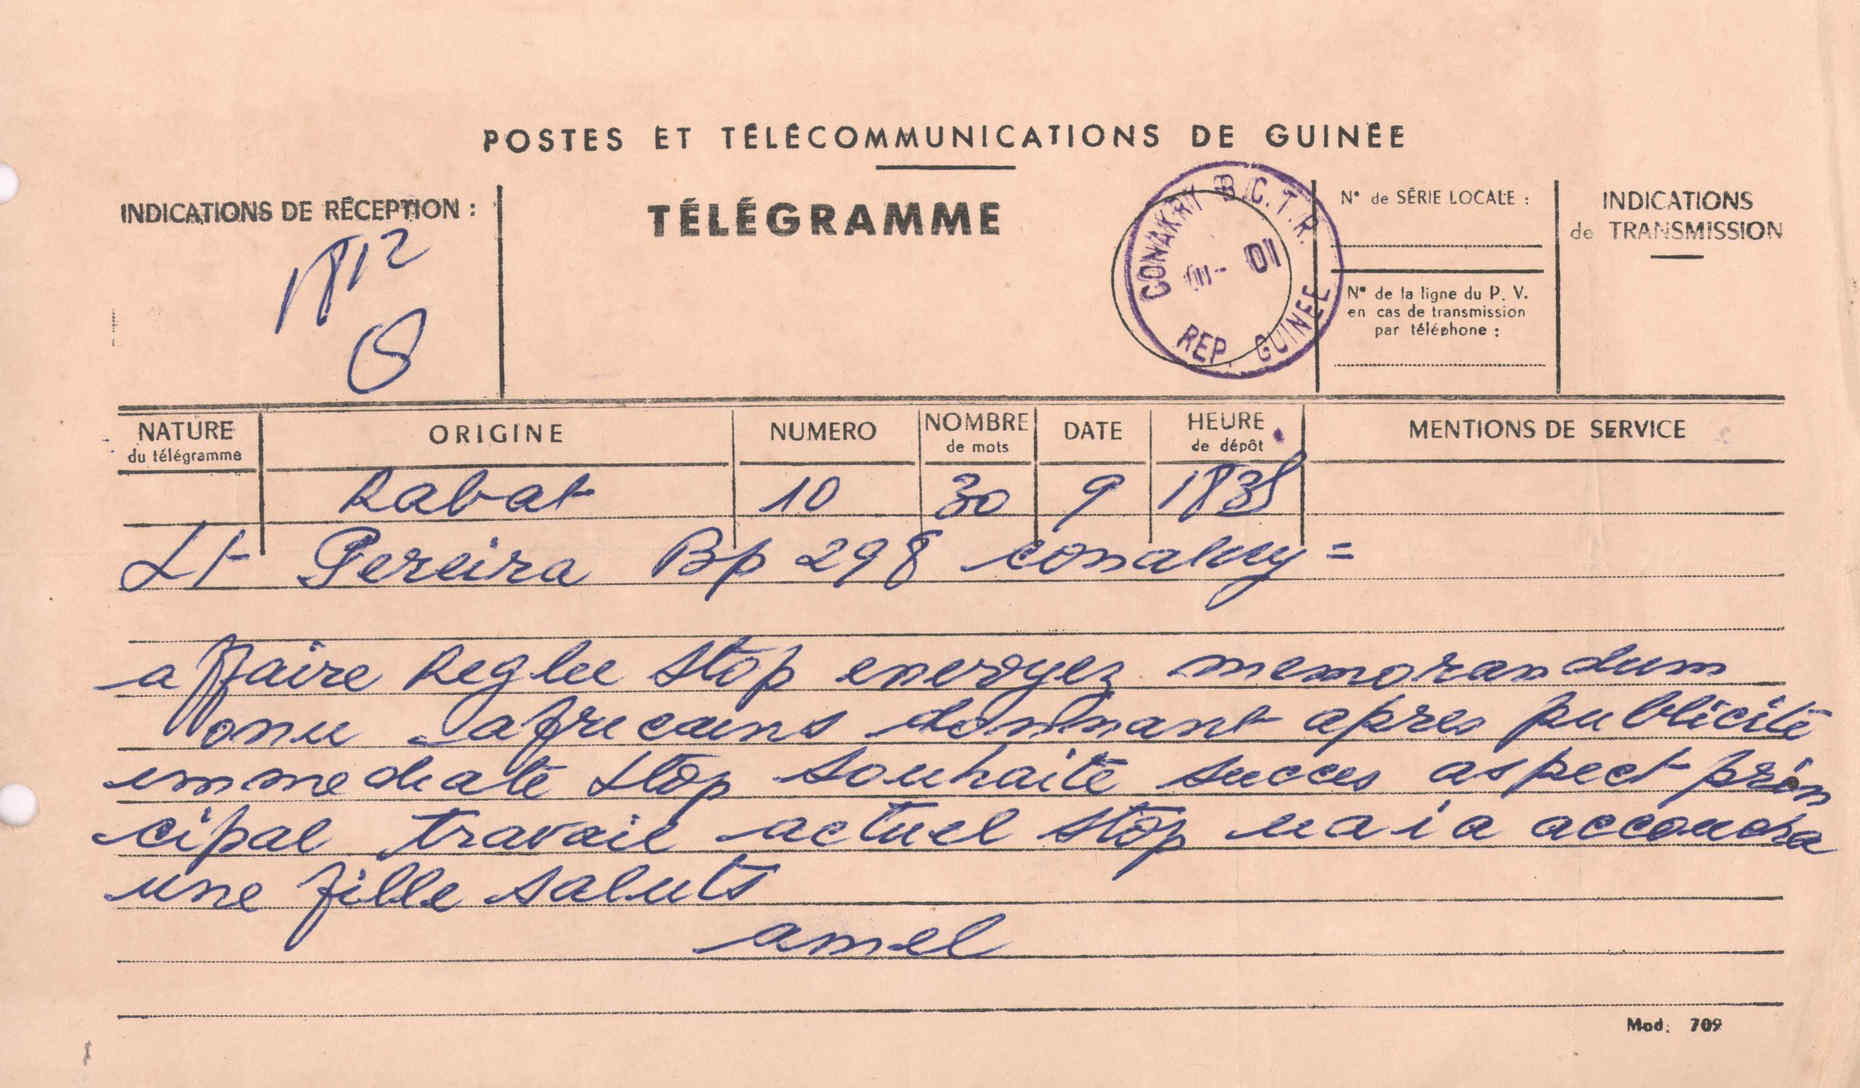 POSTES ET TÉLÉCOMMUNICATIONS DE GUINÉE
INDICATIONS DE RÉCEPTION :
1812
TÉLÉGRAMME
CONAKRY B.C.T.R.
01
REP. GUINEE
N° de SÉRIE LOCALE :
N° de la ligne du P. V.
en cas de transmission
par téléphone :
INDICATIONS
de TRANSMISSION
NATURE
du télégramme
ORIGINE
NUMERO
NOMBRE
de mots
DATE
HEURE
de dépôt
MENTIONS DE SERVICE
Rabat 10 30 9 1835
Lt Pereira Bp 298 conakry =
affaire Reglee stop envoyez memorandum
onu africains donnant apres publicité
immediate stop souhaite succes aspect prin
cipal travail actuel stop maia accoucha
une fille saluts
amel
Mod. 709